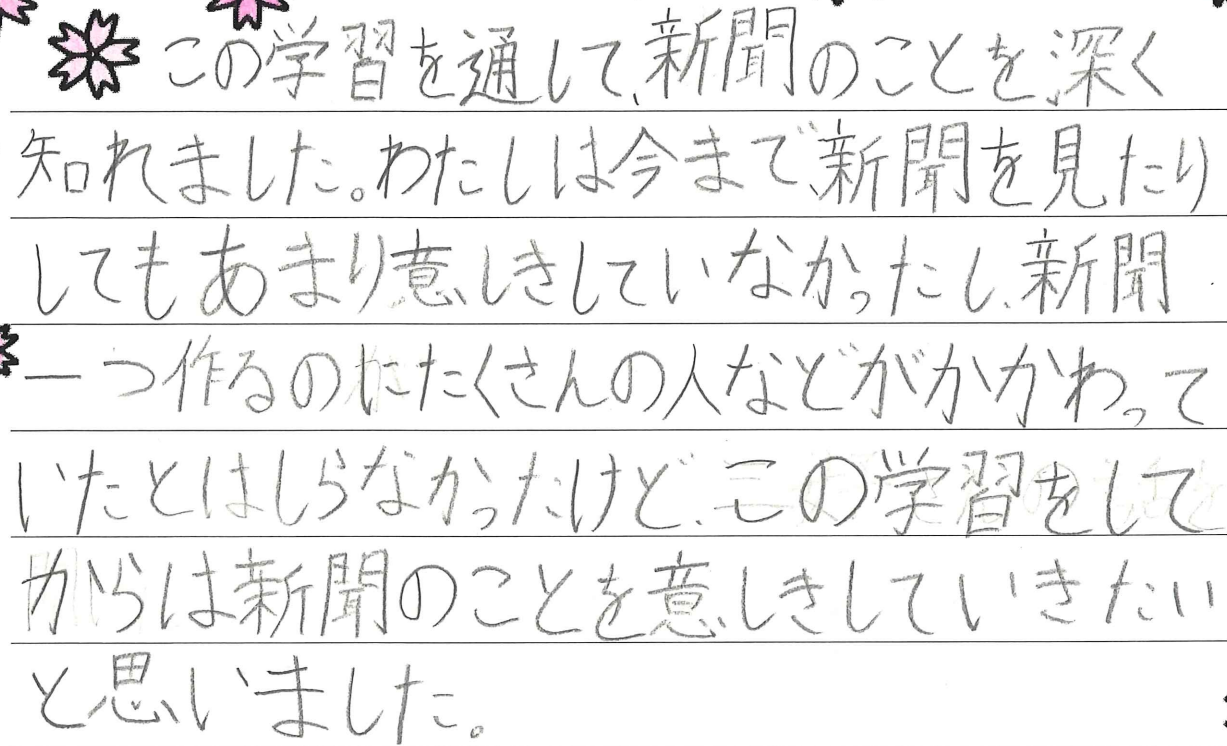 この学習を通して、新聞のことを深く
知れました。わたしは今まで、新聞を見たり
してもあまり意しきしていなかったし、新聞
一つ作るのにたくさんの人などがかかわって
いたとはしらなかったけど、この学習をして
からは新聞のことを意しきしていきたい
と思いました。